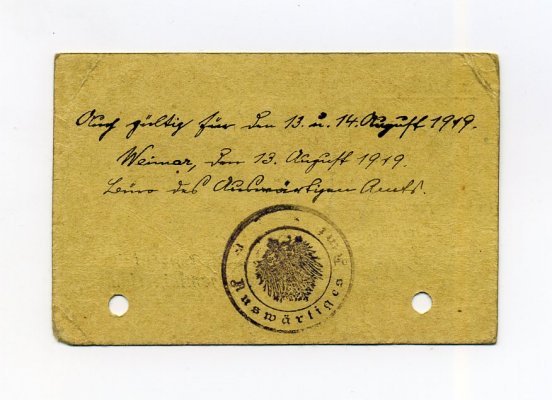 Auch gültig für den 13. u. 14. August 1919.
Weimar, den 13. August 1919.
Büro des Auswärtigen Amts.
Auswärtiges Amt